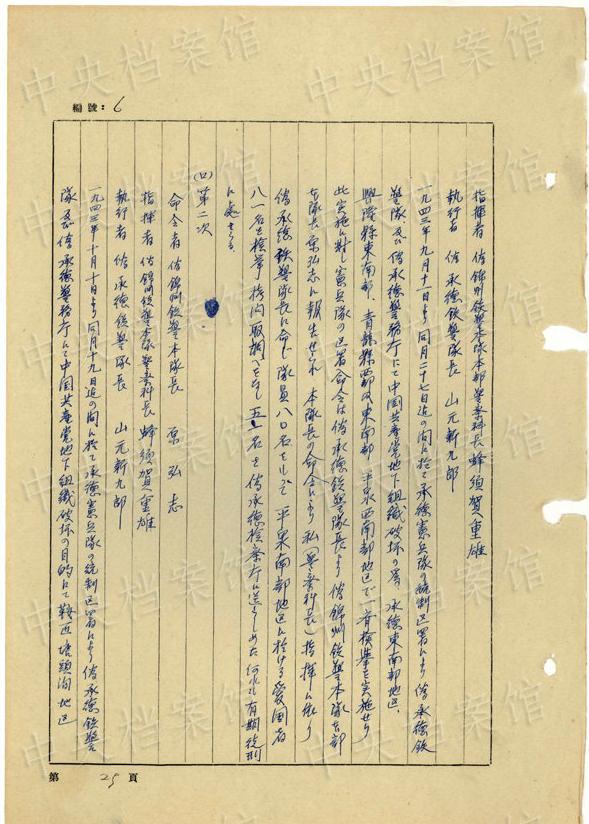 編號：6
指揮者 偽錦州鉄警本隊本部警務科長 蜂須賀重雄
執行者 偽承徳鉄警隊長 山元新九郎
一九四三年九月十一日より同月二十七日迄の間に於て承徳憲兵隊の統制区署により偽承徳鉄
警隊及び偽承徳警務庁にて中国共産党地下組織破坏の為、承徳東南部地区、
興隆縣東南部、青龍縣西部及東南部、平泉西南部地区で一斉検挙を実施せり
此実施に対し憲兵隊の区署命令は偽承徳鉄警隊長より偽錦州鉄警本隊本部
本隊長原弘志に報告せられ 本隊長の命令により私（警務科長）指揮に依り
偽承徳鉄警隊長に命じ隊員八〇名をして平泉南部地区に於ける愛国者
八一名を検挙し拷問取調べをなし 五一名を偽承徳検察庁に送らしめた 何れも有期徒刑
に処せらる
(2) 第二次
命令者 偽錦州鉄警本隊長 原弘志
指揮者 偽錦州鉄警本隊警務科長 蜂須賀重雄
執行者 偽承徳鉄警隊長 山元新九郎
一九四三年十月十日より同月十九日迄の間に於て承徳憲兵隊の統制区署により偽承徳鉄警
隊及偽承徳警務庁にて中国共産党地下組織破坏の目的にて鞍匠 塘頭溝地区
第 25 頁
中央档案馆